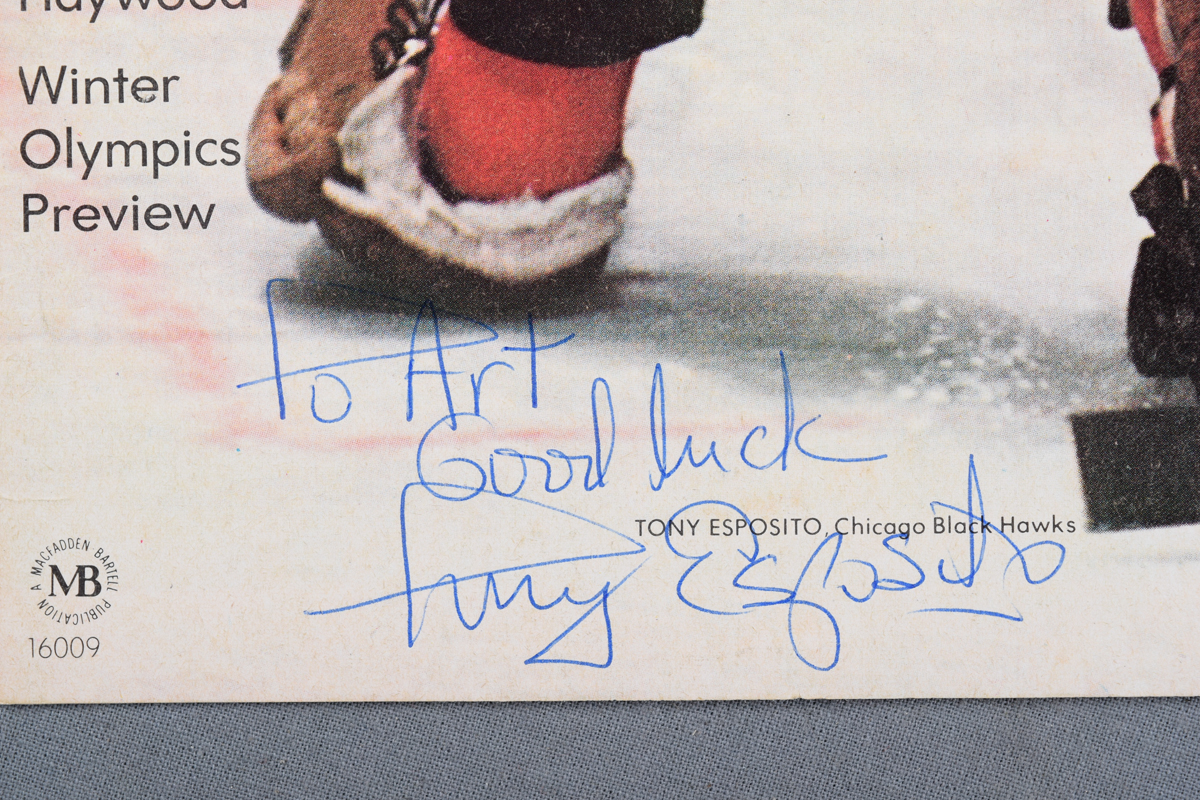 Haywood
Winter
Olympics
Preview
To Art
Good luck
TONY ESPOSITO, Chicago Black Hawks
Tony Esposito
A MACFADDEN BARTELL PUBLICATION
MB
16009